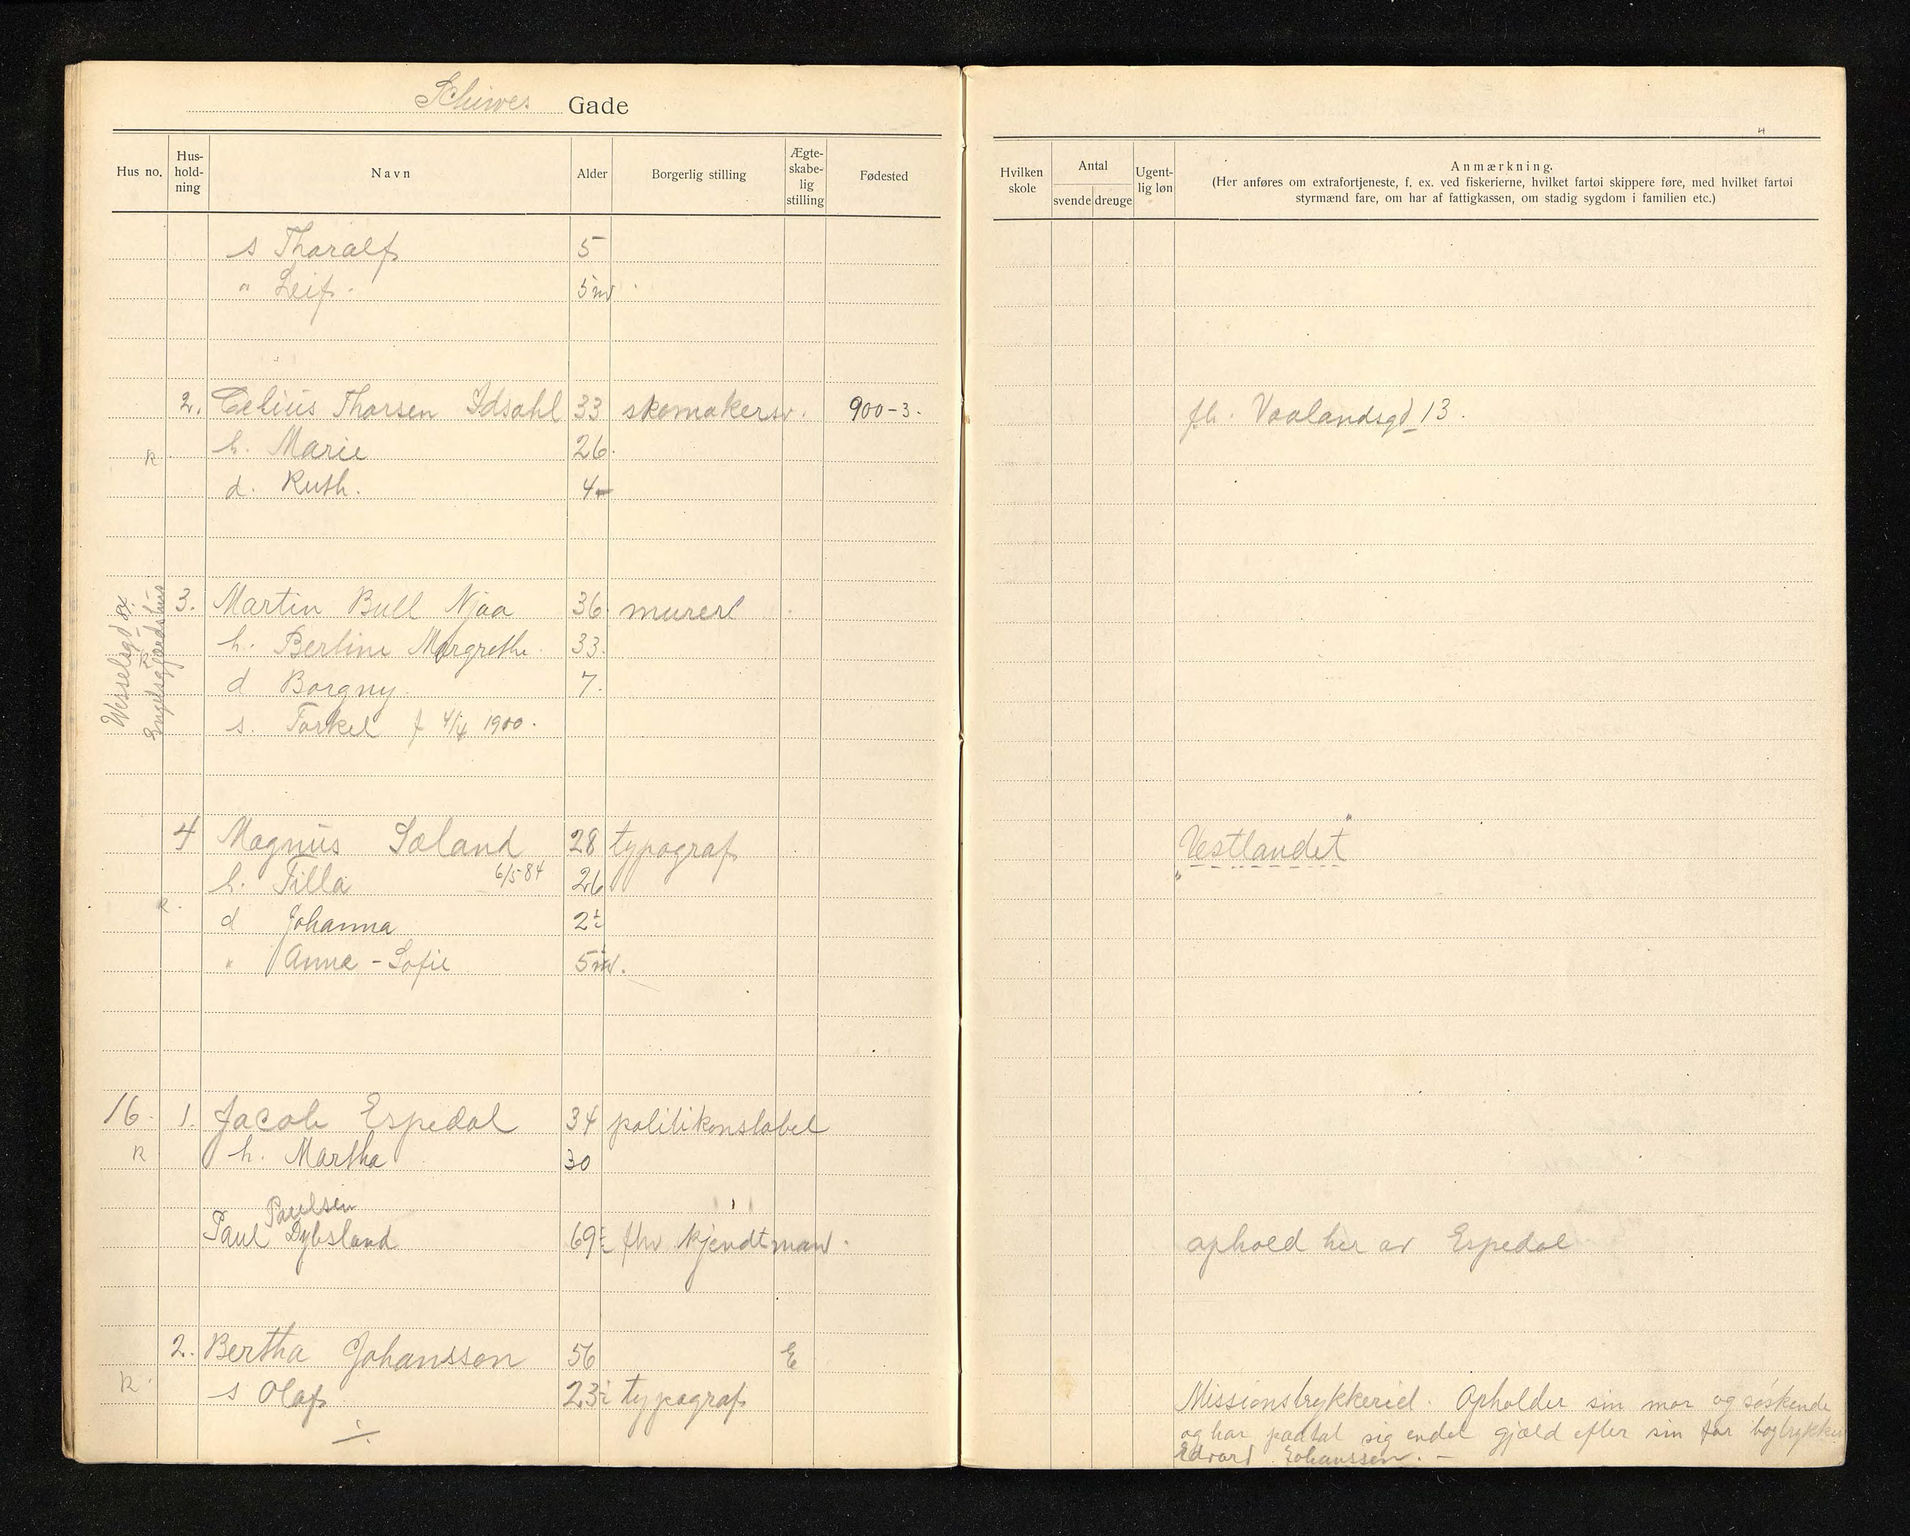 Schives Gade
Hus no. Hus-hold-ning Navn Alder Borgerlig stilling Ægte-skabe-lig stilling Fødested
s Tharalf 5
" Leif. 5 m
2. Celius Thorsen Idsahl 33 skomakersv. 900-3.
R h. Marie 26
d. Ruth. 4
Wesselsgd
3. Martin Bull Njaa 36 murer
h. Bertine Margrethe 33
d Borgny 7.
s. Torkel f 4/4 1900.
4 Magnus Sæland 28 typograf
h. Tilla 6/5 84 26
R. d Johanna 2
" Anna-Sofie 5
16. 1. Jacob Espedal 34 politikonstabel
R h. Martha 30
Paulsen
Paul Dybsland 69 fhv kjendtmand.
2. Bertha Johanssen 56 E
R s Olaf 23 typograf
Hvilken skole Antal svende drenge Ugent-lig løn Anmærkning.
(Her anføres om extrafortjeneste, f. ex. ved fiskerierne, hvilket fartøi skippere føre, med hvilket fartøi
styrmænd fare, om har af fattigkassen, om stadig sygdom i familien etc.)
fl. Vaalandsgd 13.
"Vestlandet"
ophold her av Espedal
Missionstrykkeriet. Opholder sin mor og søskende
og har paatat sig endel gjæld efter sin far bogtrykker
Edvard Johanssen. -